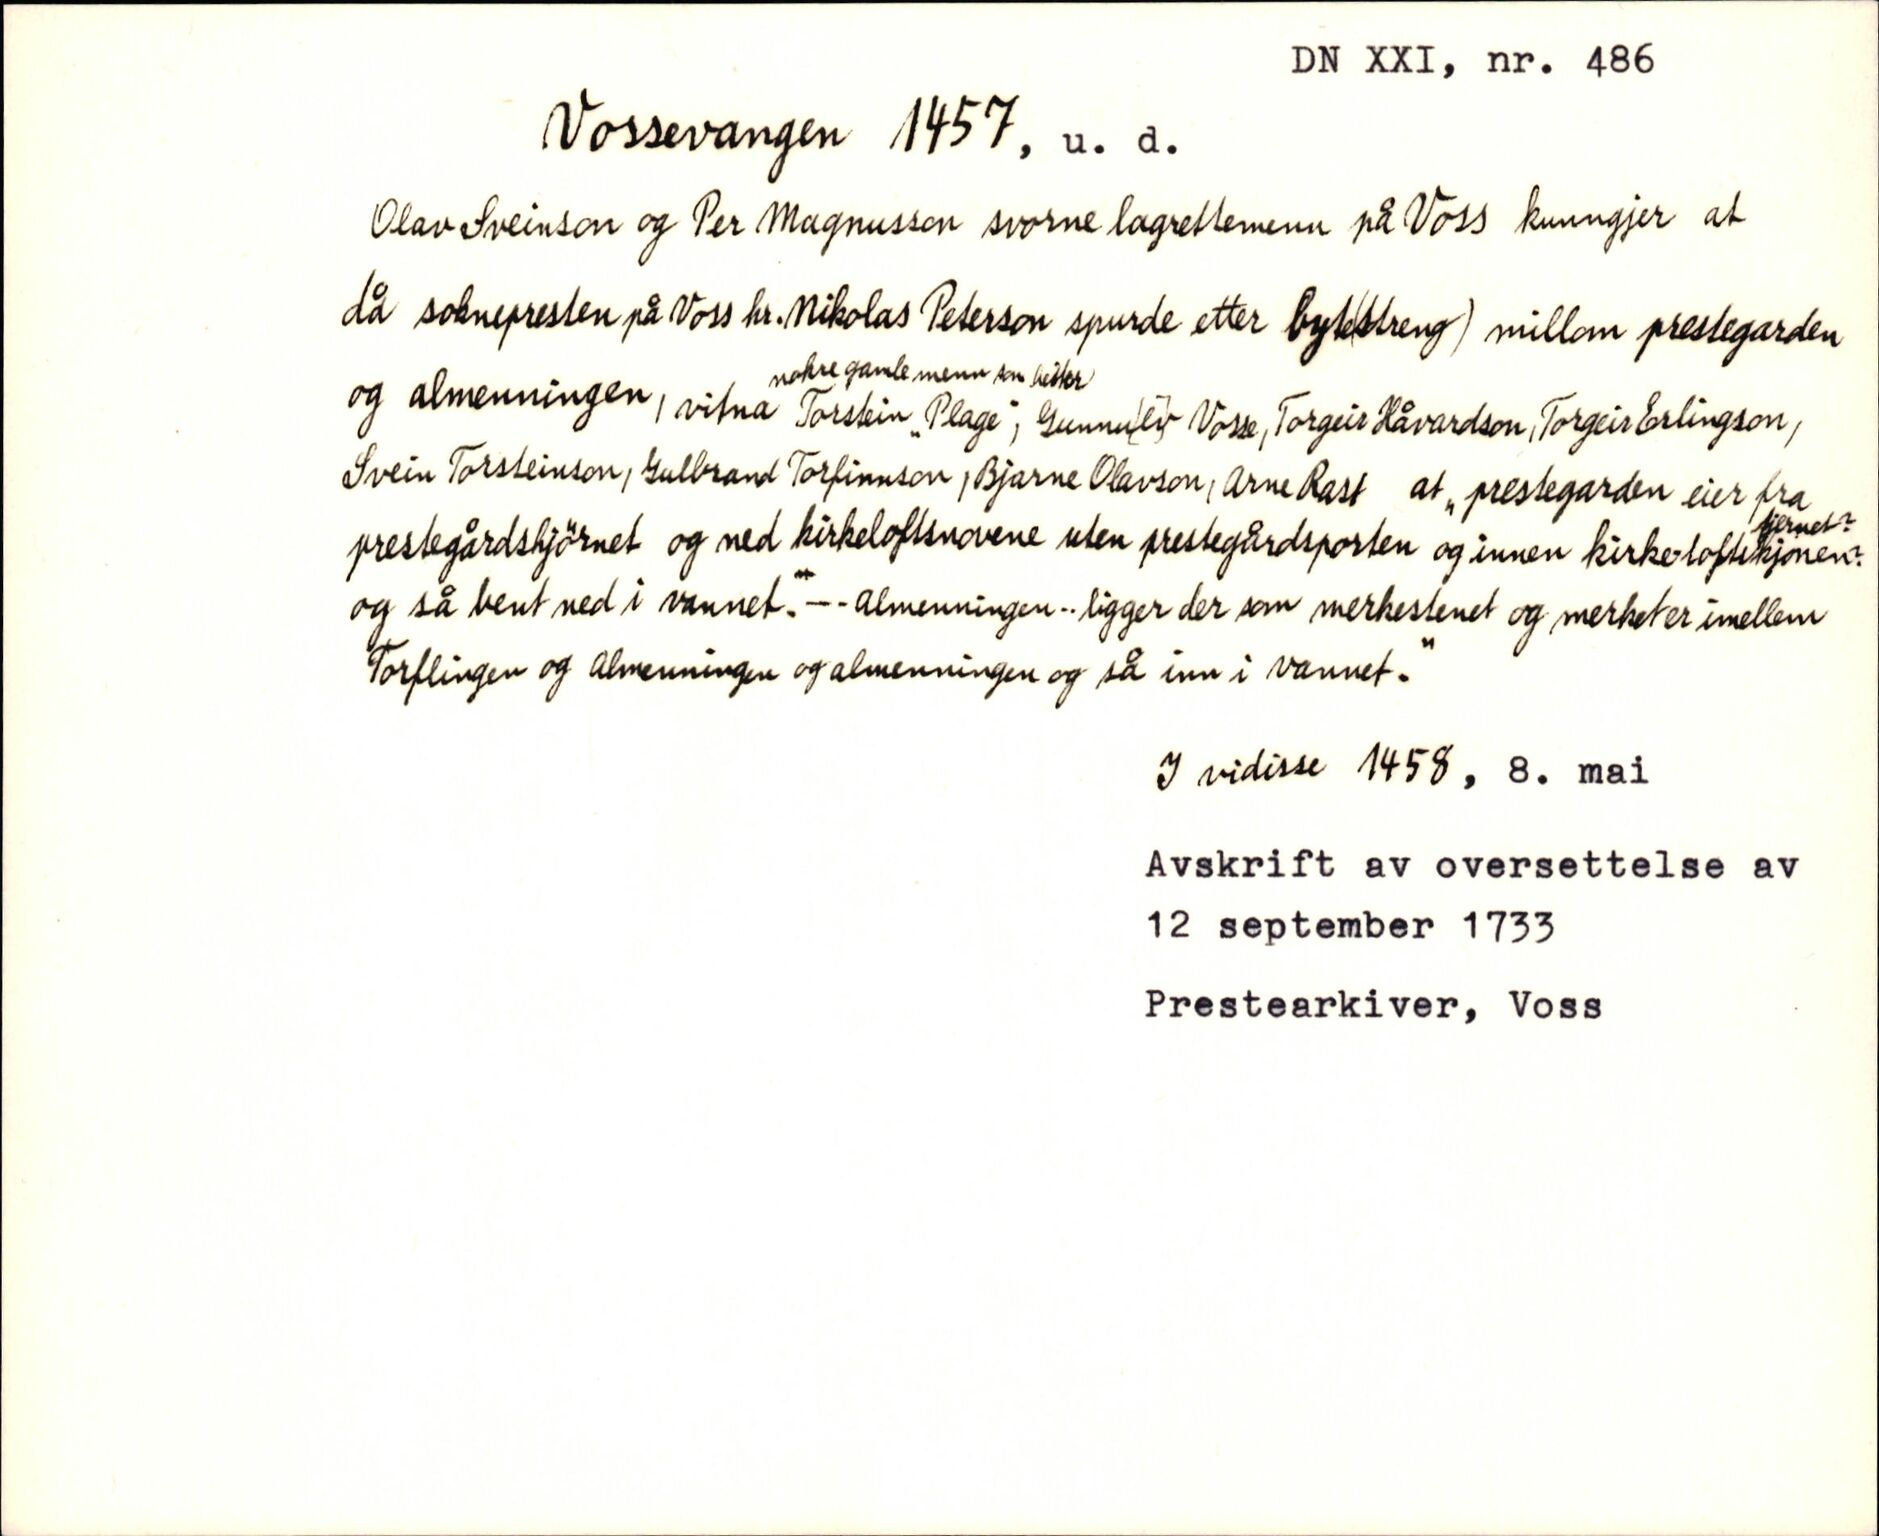 DN XXI, nr. 486
Vossevangen 1457, u. d.
Olav Sveinson og Per Magnusson svorne lagrettemenn på Voss kunngjer at
då soknepresten på Voss hr. Nikolas Peterson spurde etter byte(streng) millom prestegarden
nokre gamle menn som heiter
og almenningen, vitna Torstein „Plage", Gunnu[le]v Vosse, Torgeir Håvardson, Torgeir Erlingson,
Svein Torsteinson, Gulbrand Torfinnson, Bjarne Olavson, Arne Rast at „prestegarden eier fra
prestegårdshjörnet og ned kirkeloftsnovene uten prestegårdsporten og innen kirkeloftskjönen?
hjernet?
og så bent ned i vannet." -- almenningen -- ligger der som merkestenet og merket er imellem
Torflingen og almenningen og almenningen og så inn i vannet."
I vidisse 1458, 8. mai
Avskrift av oversettelse av
12 september 1733
Prestearkiver, Voss